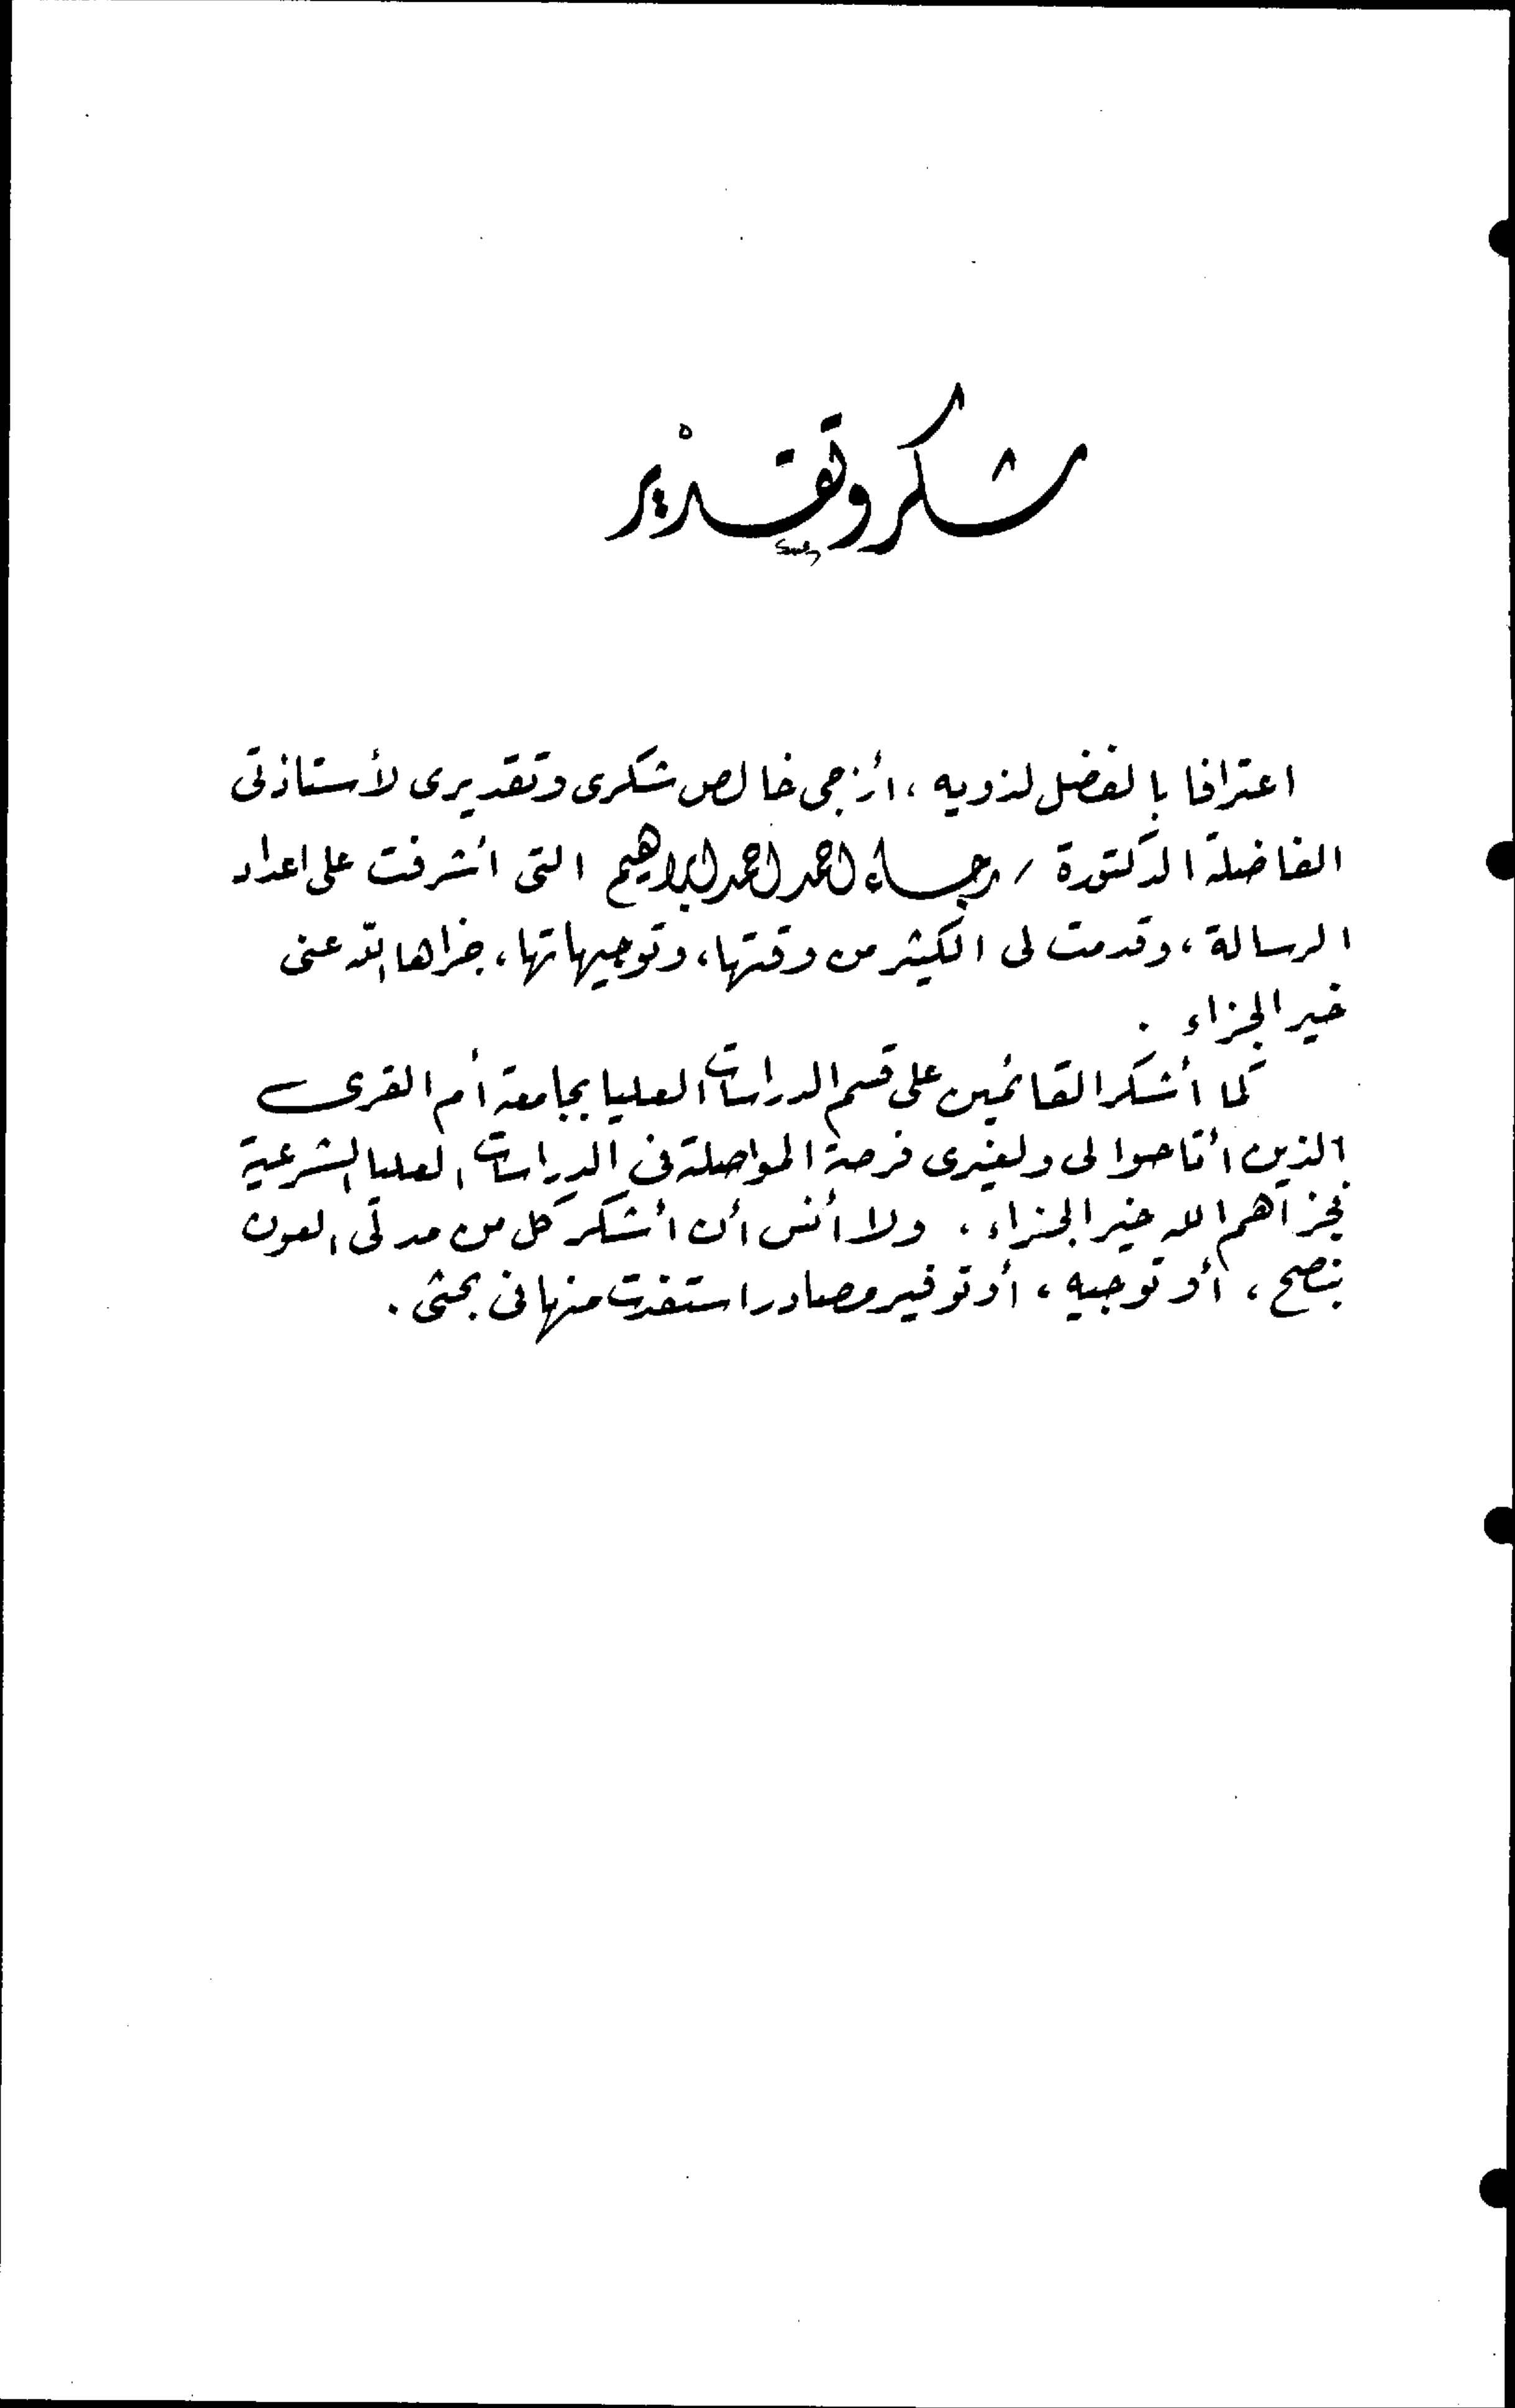 شكر وتقدير
اعترافا بالفضل لذويه ، أزجى خالص شكرى وتقديرى لأستاذتى
الفاضلة الدكتورة / رجاء احمد احمد ابراهيم التى أشرفت على اعداد
الرسالة ، وقدمت لى الكثير من وقتها ، وتوجيهاتها ، جزاها الله عنى
خير الجزاء .
كما أشكر القائمين على قسم الدراسات العليا بجامعة أم القرى
الذين أتاحوا لى ولغيرى فرصة المواصلة فى الدراسات العليا الشرعية
فجزاهم الله خير الجزاء . ولا أنس أن أشكر كل من مد لى العون
بنصح ، أو توجيه ، أو توفير مصادر استفدت منها فى بحثى .